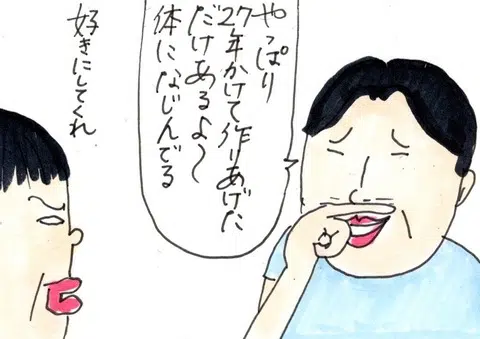 やっぱり
27年かけて作りあげた
だけあるよ〜
体になじんでる
好きにしてくれ